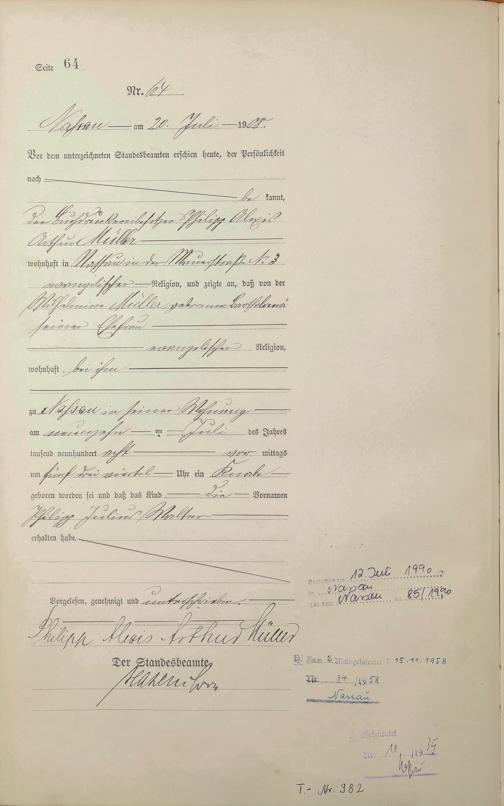 Seite 64
Nr. 64
Nassau am 20. Juli 1908.
Vor dem unterzeichneten Standesbeamten erschien heute, der Persönlichkeit
nach
be kannt,
der Buchdruckereibesitzer Philipp Alexis
Arthur Müller
wohnhaft in Nassau in der Mauerstraße No 3
evangelischer Religion, und zeigte an, daß von der
Wilhelmine Müller geborene
seiner Ehefrau
evangelischer Religion,
wohnhaft bei ihm
zu Nassau in seiner Wohnung
am neunzehn ten Juli des Jahres
tausend neunhundert acht vor mittags
um fünf drei viertel Uhr ein Knabe
geboren worden sei und daß das Kind die Vornamen
Philipp Julius Walter
erhalten habe.
Vorgelesen, genehmigt und unterschrieben.
Philipp Alexis Arthur Müller
Der Standesbeamte.
12. Juli 1990
in Nassau
Nassau 85/1990
15.11.1958
Nr. 34/1958
Nassau
Geheiratet
Nr. 11
T.- Nr. 982